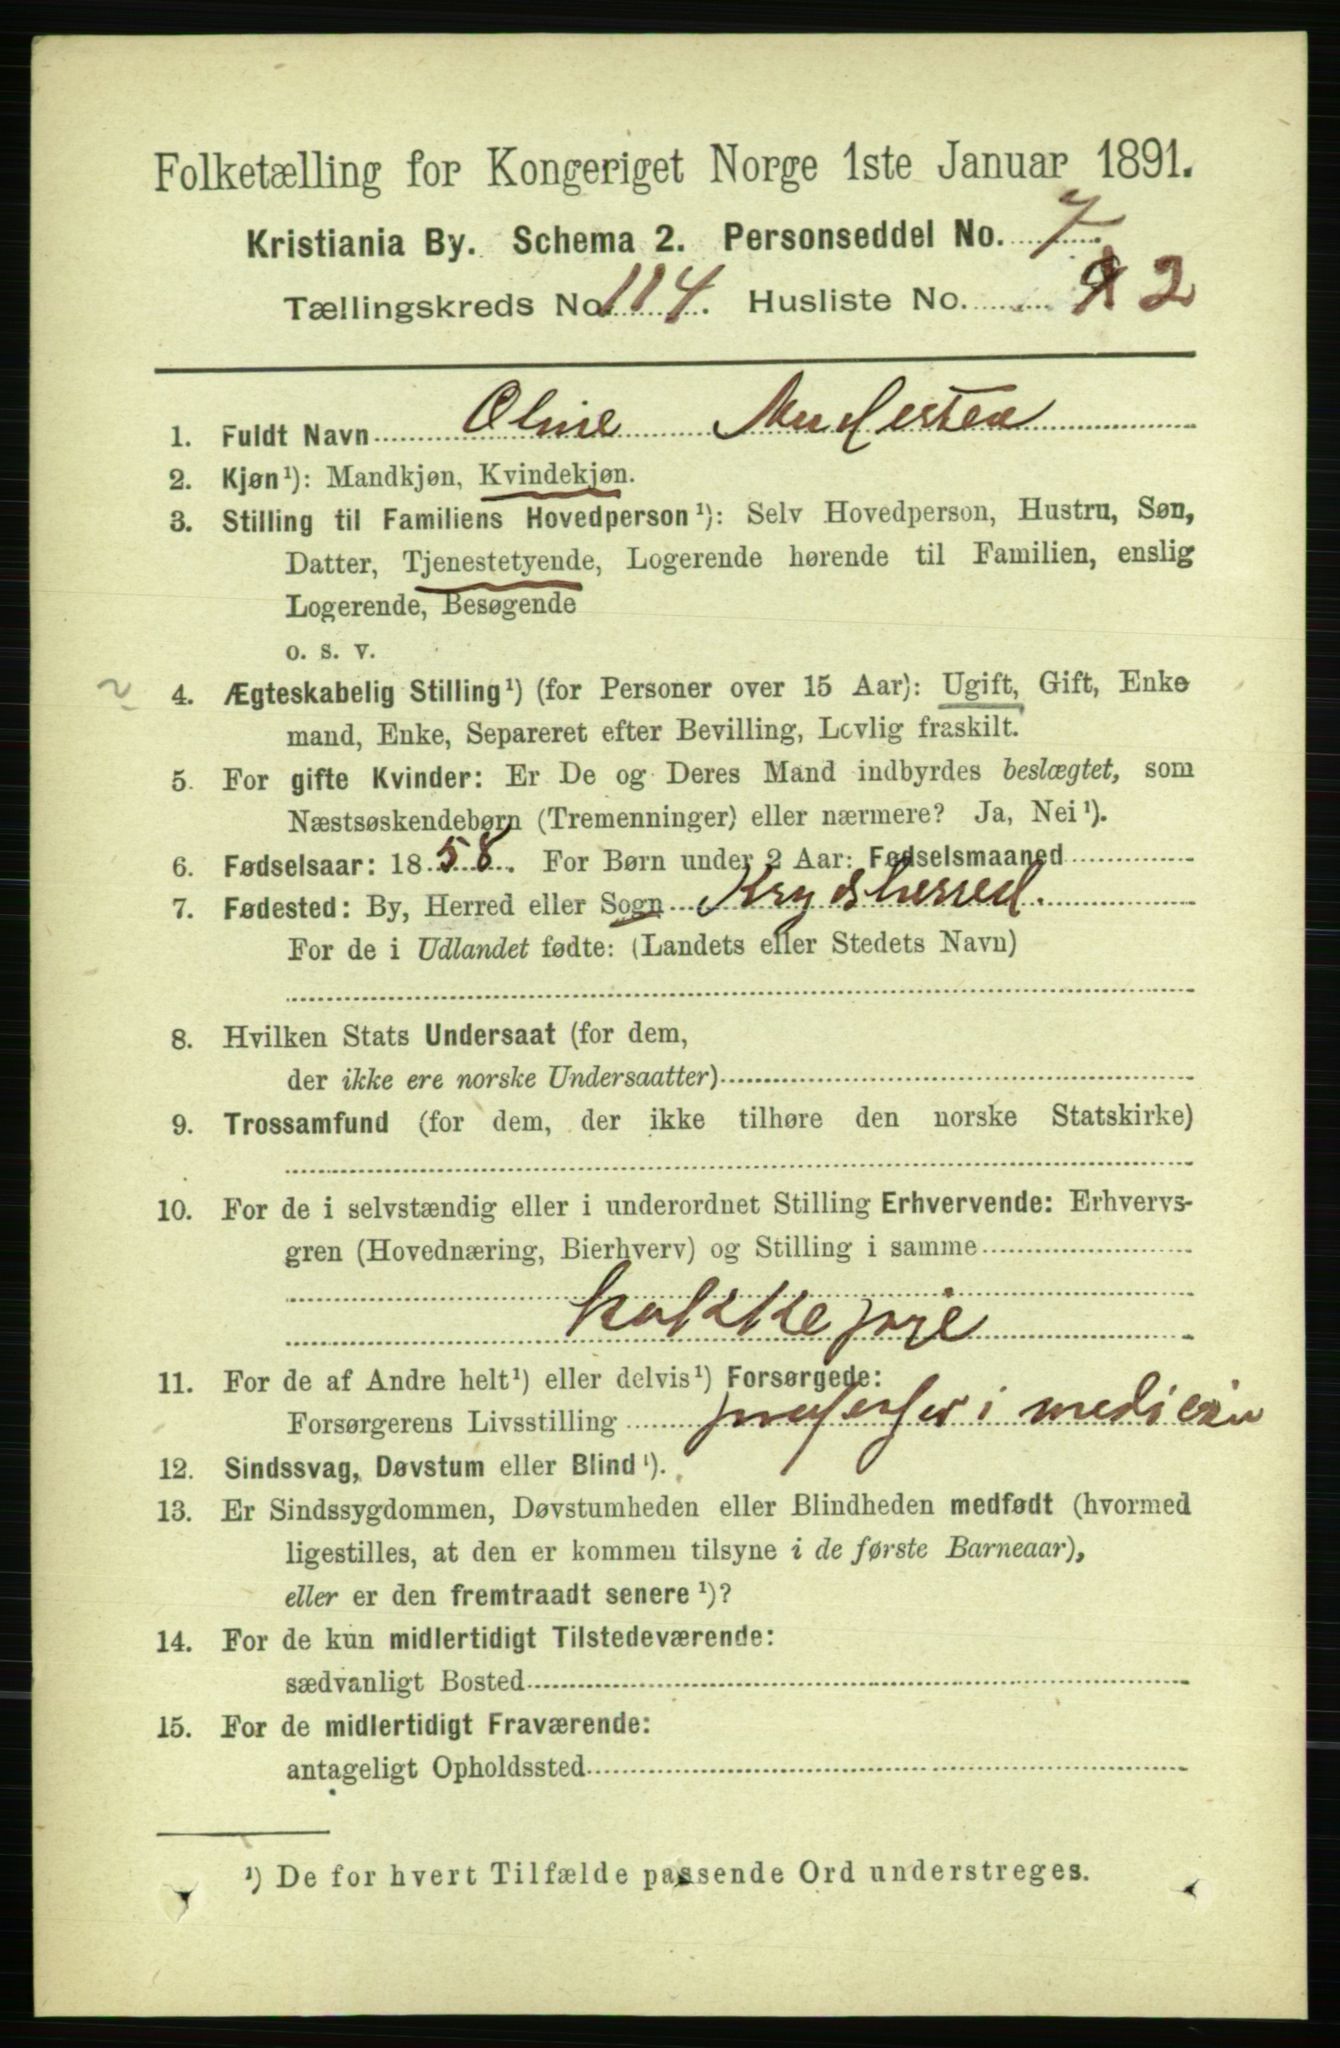 Folketælling for Kongeriget Norge 1ste Januar 1891.
Kristiania By. Schema 2. Personseddel No. 7
Tællingskreds No. 114. Husliste No. 2
1. Fuldt Navn Oline
2. Kjøn¹): Mandkjøn, Kvindekjøn.
3. Stilling til Familiens Hovedperson¹): Selv Hovedperson, Hustru, Søn,
Datter, Tjenestetyende, Logerende hørende til Familien, enslig
Logerende, Besøgende
o. s. v.
2
4. Ægteskabelig Stilling¹) (for Personer over 15 Aar): Ugift, Gift, Enke
mand, Enke, Separeret efter Bevilling, Lovlig fraskilt.
5. For gifte Kvinder: Er De og Deres Mand indbyrdes beslægtet, som
Næstsøskendebørn (Tremenninger) eller nærmere? Ja, Nei¹).
6. Fødselsaar: 1858. For Børn under 2 Aar: Fødselsmaaned
7. Fødested: By, Herred eller Sogn Krydsherred.
For de i Udlandet fødte: (Landets eller Stedets Navn)
8. Hvilken Stats Undersaat (for dem,
der ikke ere norske Undersaatter)
9. Trossamfund (for dem, der ikke tilhøre den norske Statskirke)
10. For de i selvstændig eller i underordnet Stilling Erhvervende: Erhvervs-
gren (Hovednæring, Bierhverv) og Stilling i samme
kokkepige
11. For de af Andre helt¹) eller delvis¹) Forsørgede:
Forsørgerens Livsstilling professor i medicin
12. Sindssvag, Døvstum eller Blind¹).
13. Er Sindssygdommen, Døvstumheden eller Blindheden medfødt (hvormed
ligestilles, at den er kommen tilsyne i de første Barneaar),
eller er den fremtraadt senere¹)?
14. For de kun midlertidigt Tilstedeværende:
sædvanligt Bosted
15. For de midlertidigt Fraværende:
antageligt Opholdssted
¹) De for hvert Tilfælde passende Ord understreges.